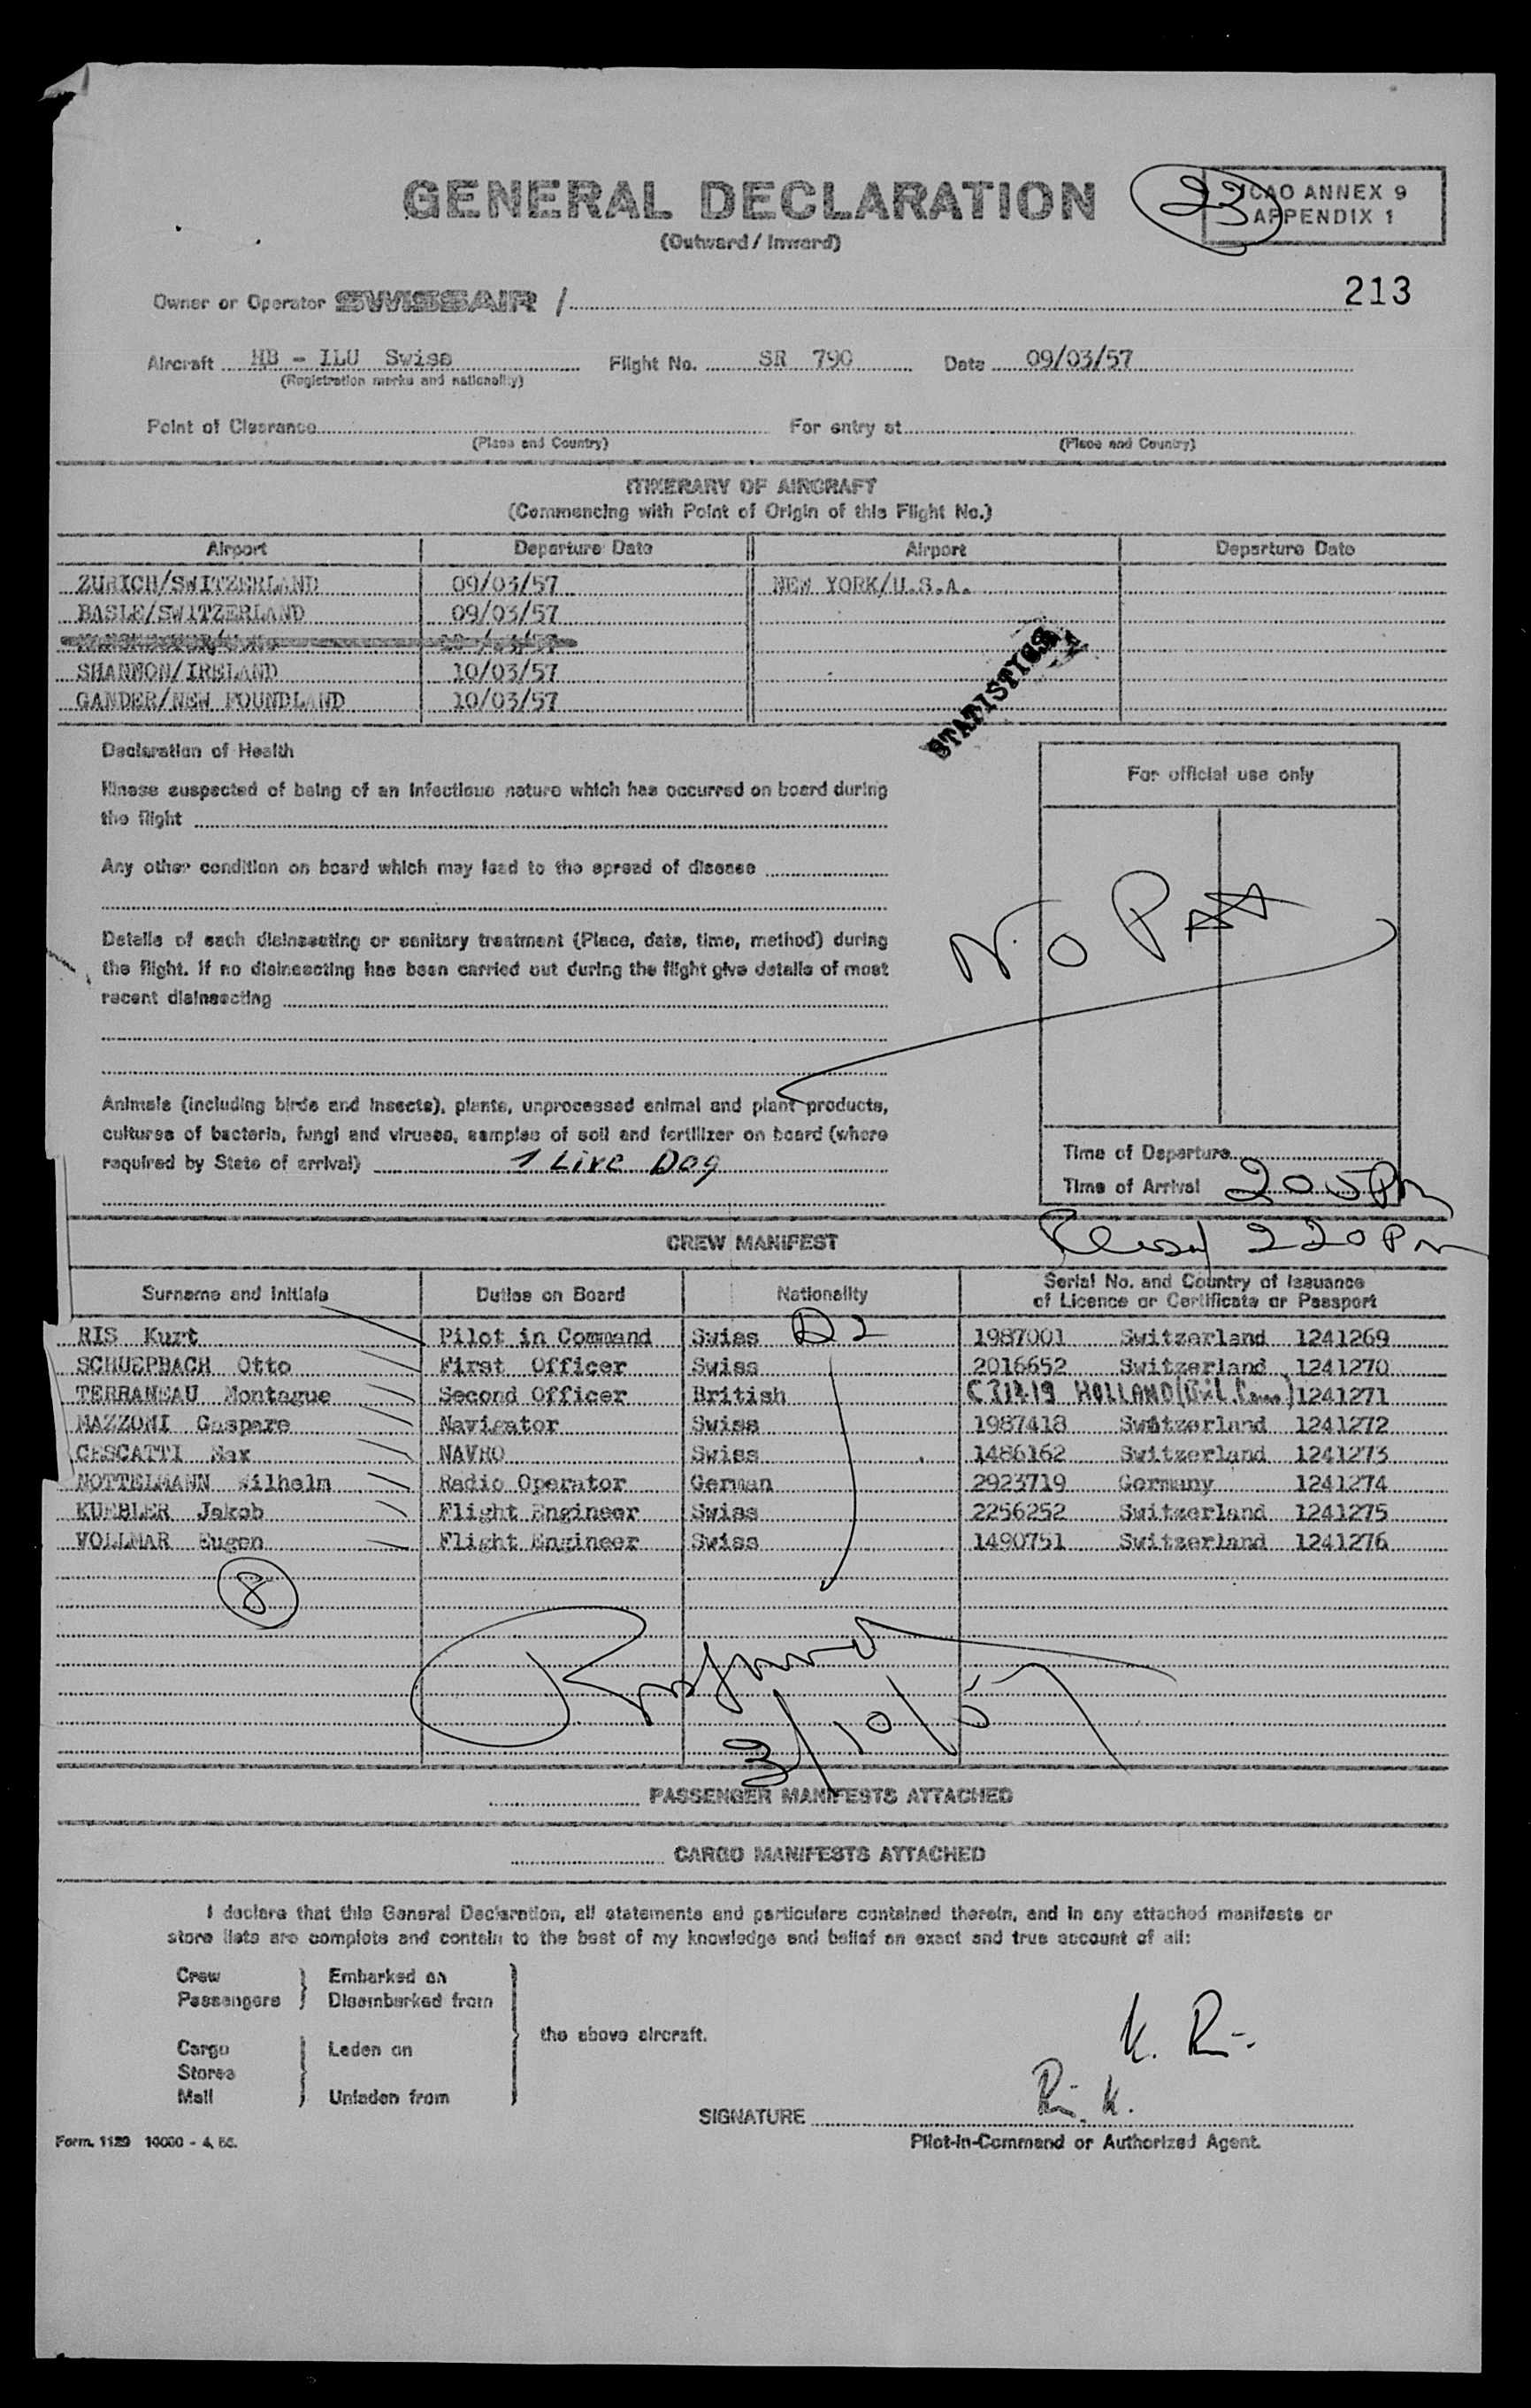 GENERAL DECLARATION
(Outward / Inward)
23
ICAO ANNEX 9
APPENDIX 1
213
Owner or Operator SWISSAIR /
Aircraft HB - ILU Swiss Flight No. SR 790 Date 09/03/57
(Registration marks and nationality)
Point of Clearance For entry at
(Place and Country) (Place and Country)
ITINERARY OF AIRCRAFT
(Commencing with Point of Origin of this Flight No.)
Airport Departure Date Airport Departure Date
ZURICH/SWITZERLAND 09/03/57 NEW YORK/U.S.A.
BASLE/SWITZERLAND 09/03/57
SHANNON/IRELAND 10/03/57
GANDER/NEW FOUNDLAND 10/03/57
STATISTICS
Declaration of Health
Illness suspected of being of an infectious nature which has occurred on board during
the flight
Any other condition on board which may lead to the spread of disease
Details of each disinsecting or sanitary treatment (Place, date, time, method) during
the flight. If no disinsecting has been carried out during the flight give details of most
recent disinsecting
Animals (including birds and insects), plants, unprocessed animal and plant products,
cultures of bacteria, fungi and viruses, samples of soil and fertilizer on board (where
required by State of arrival) 1 Live Dog
For official use only
NO PAX
Time of Departure
Time of Arrival 205 PM
220 PM
CREW MANIFEST
Surname and Initials Duties on Board Nationality Serial No. and Country of Issuance
of Licence or Certificate or Passport
RIS Kurt Pilot in Command Swiss D2 1987001 Switzerland 1241269
SCHUEPBACH Otto First Officer Swiss 2016652 Switzerland 1241270
TERRANEAU Montague Second Officer British HOLLAND 1241271
MAZZONI Gaspare Navigator Swiss 1987418 Switzerland 1241272
CESCATTI Max NAVRO Swiss 1486162 Switzerland 1241273
NOTTELMANN Wilhelm Radio Operator German 2923719 Germany 1241274
KUEBLER Jakob Flight Engineer Swiss 2256252 Switzerland 1241275
VOLLMAR Eugen Flight Engineer Swiss 1490751 Switzerland 1241276
8
3/10/57
PASSENGER MANIFESTS ATTACHED
CARGO MANIFESTS ATTACHED
I declare that this General Declaration, all statements and particulars contained therein, and in any attached manifests or
store lists are complete and contain to the best of my knowledge and belief an exact and true account of all:
Crew Embarked on
Passengers Disembarked from
the above aircraft.
Cargo Laden on
Stores
Mail Unladen from
K. Ris
Ris. K.
SIGNATURE
Pilot-in-Command or Authorized Agent.
Form. 1129 10000 - 4. 56.